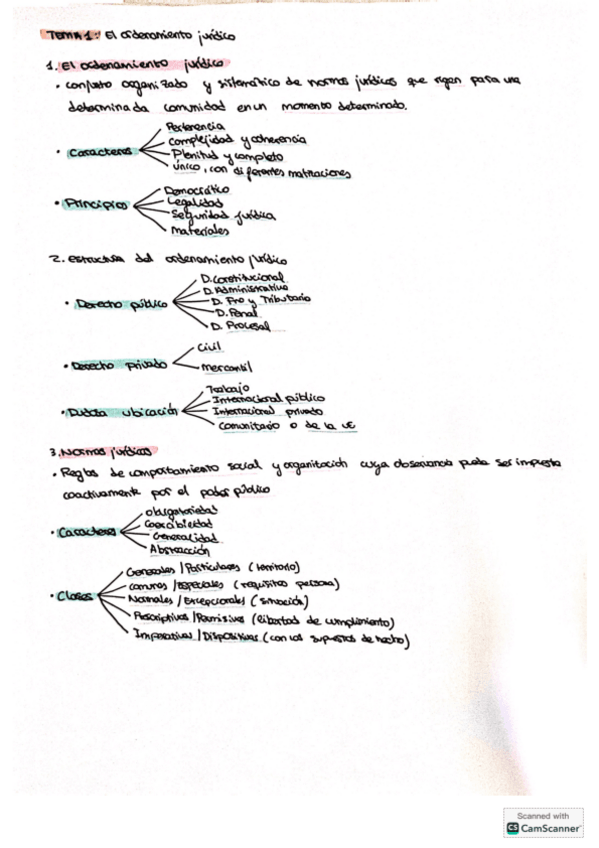 Tema 1: El ordenamiento jurídico
1. El ordenamiento jurídico
· conjunto organizado y sistemático de normas jurídicas que rigen para una
determinada comunidad en un momento determinado.
· Caracteres
Pertenencia
Complejidad y coherencia
Plenitud y completo
Único, con diferentes matizaciones
· Principios
Democrático
Legalidad
Seguridad jurídica
Materiales
2. Estructura del ordenamiento jurídico
· Derecho público
D. Constitucional
D. Administrativo
D. Fro y Tributario
D. Penal
D. Procesal
· Derecho privado
Civil
Mercantil
· Dudosa ubicación
Trabajo
Internacional público
Internacional privado
Comunitario o de la UE
3. Normas jurídicas
· Reglas de comportamiento social y organización cuya observancia puede ser impuesta
coactivamente por el poder público
· Caracteres
Obligatoriedad
Coercibilidad
Generalidad
Abstracción
· Clases
Generales / Particulares (territorio)
Comunes / Especiales (requisitos persona)
Normales / Excepcionales (situación)
Prescriptivas / Permisivas (libertad de cumplimiento)
Imperativas / Dispositivas (con los supuestos de hecho)
Scanned with
CS CamScanner